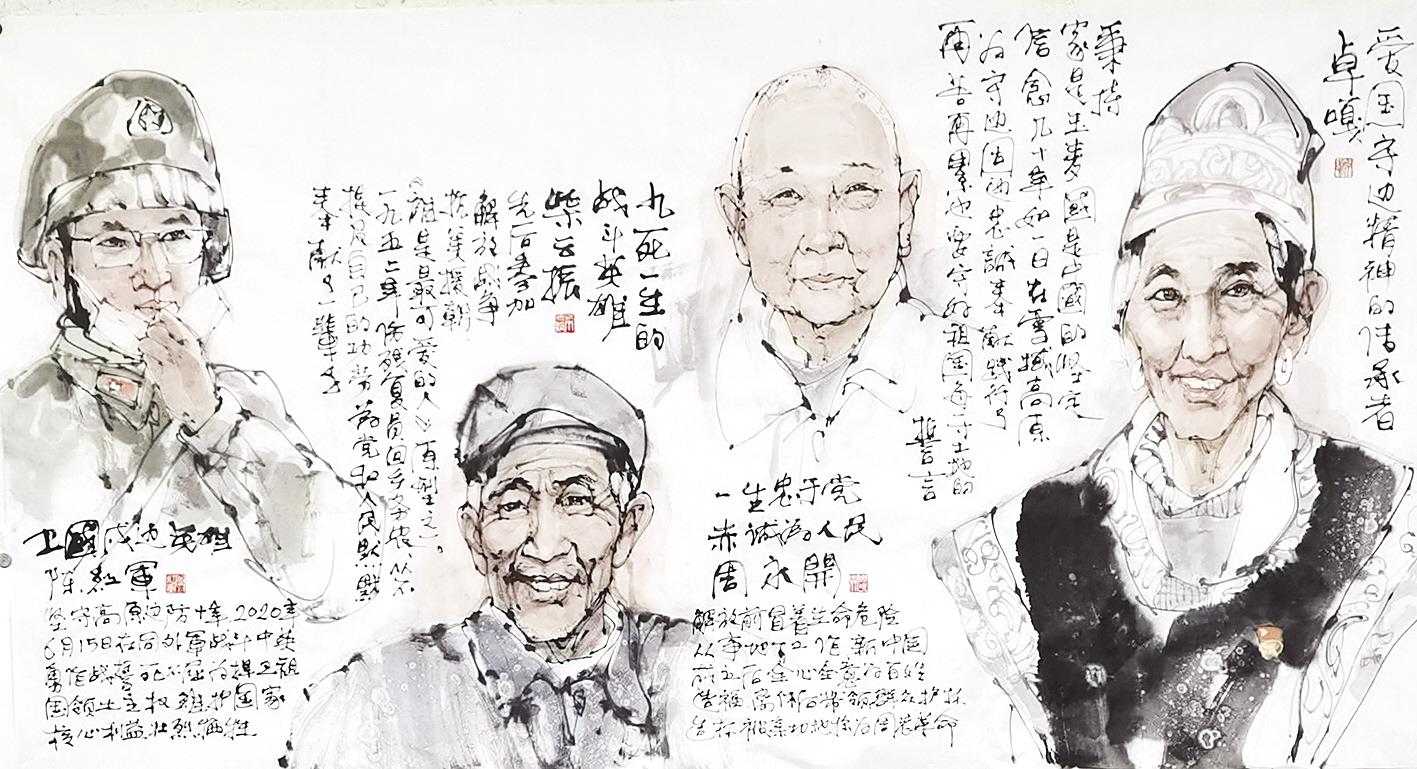 爱国守边精神的传承者
卓嘎
秉持
家是玉麦國是中國的坚定
信念几十年如一日在雪域高原
为守边固边忠誠奉献践行了
再苦再累也要守好祖国每寸土地的
誓言
一生忠于党
赤诚为人民
周永開
解放前冒着生命危险
从事地下工作新中国
成立后全心全意为百姓
造福离休后带领群众护林
造林被亲切地称为周老革命
九死一生的
战斗英雄
柴云振
先后参加
解放战争
抗美援朝
《誰是最可爱的人》原型之一。
一九五二年伤残复員回乡务农、从不
提及自己的功劳为党和人民默默
奉献了一輩子
卫國戍边英雄
陈红軍
坚守高原边防十年,2020年
6月15日在同外軍战斗中英
勇作战誓死不屈为捍卫祖
国领土主权維护国家
核心利益壮烈牺牲